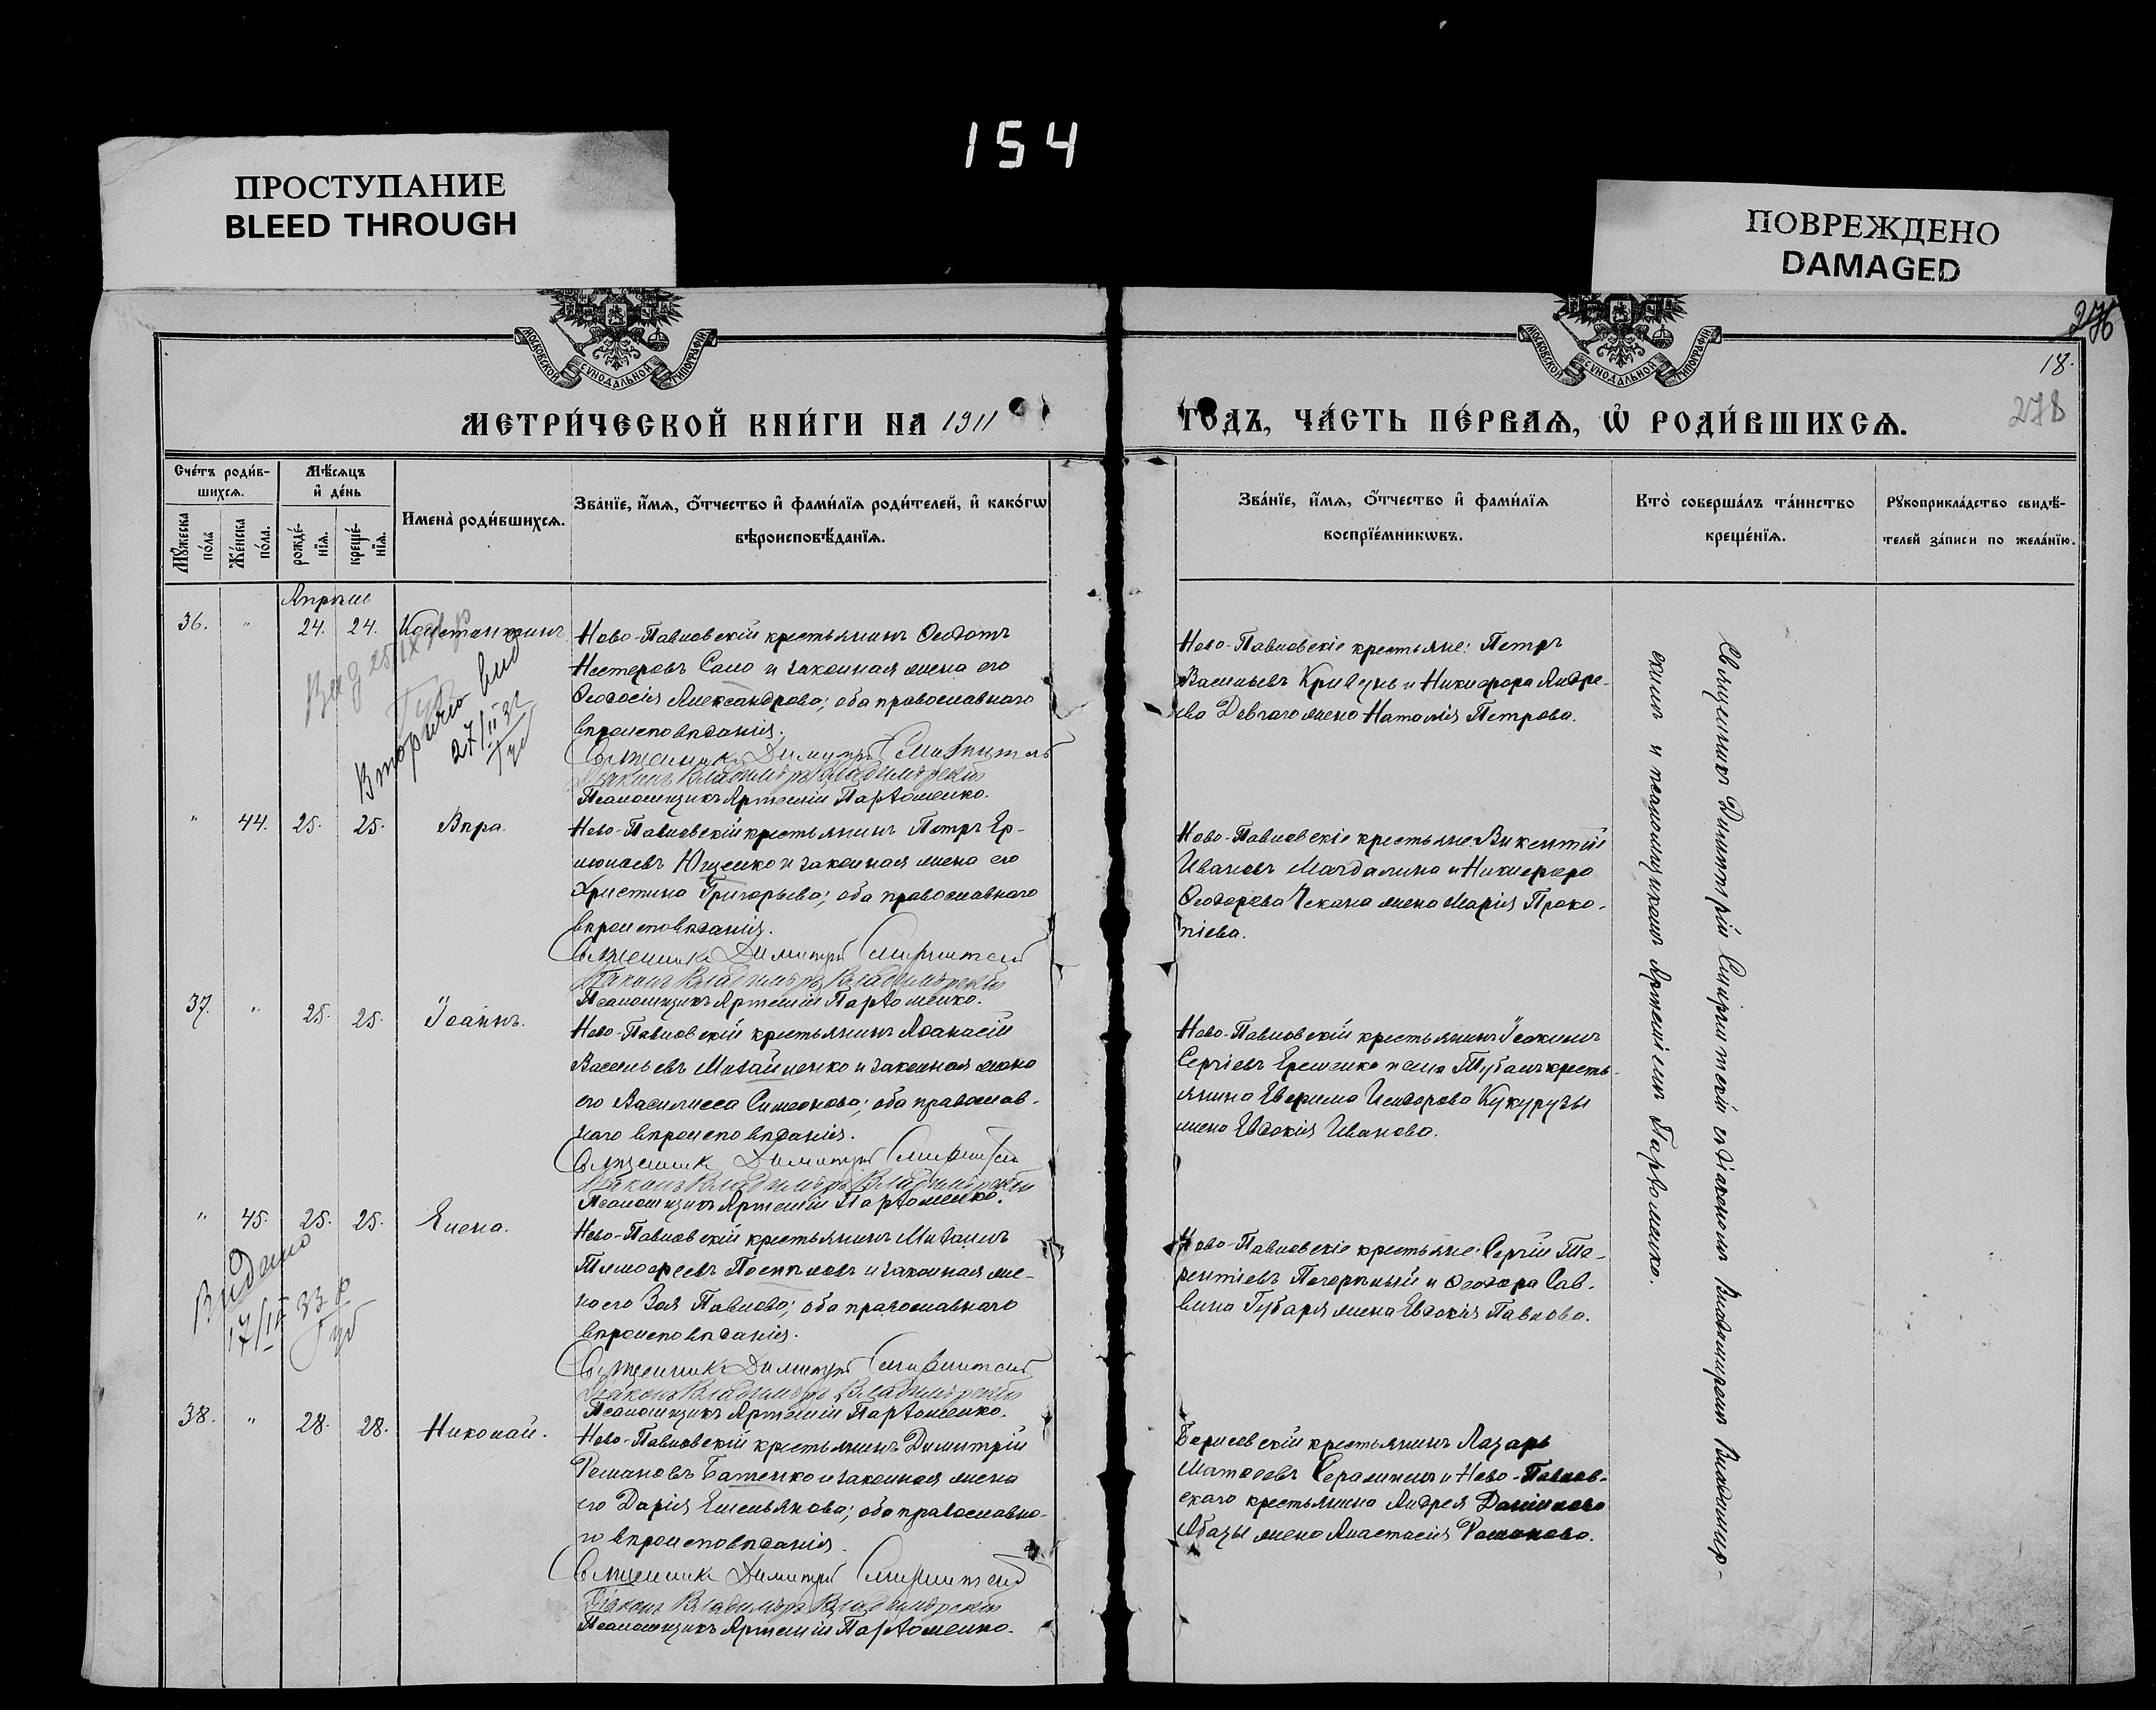 154
ПРОСТУПАНИЕ
BLEED THROUGH
ПОВРЕЖДЕНО
DAMAGED
МОСКОВСКОЙ СУНОДАЛЬНОЙ ТИПОГРАФІИ
МОСКОВСКОЙ СУНОДАЛЬНОЙ ТИПОГРАФІИ
276
18.
278
МЕТРИ́ЧЕСКОЙ КНИ́ГИ НА 1911
ГОДЪ, ЧА́СТЬ ПЕ́РВАѦ, Ѡ҆ РОДИ́ВШИХСѦ.
Сче́тъ роди́в-
шихсѧ.
Мꙋ́жеска по́ла
Же́нска по́ла.
Мѣ́сѧцъ
и҆ де́нь
рожде́-
нїѧ.
креще́-
нїѧ.
И҆мена̀ роди́вшихсѧ.
Зва́нїе, и҆́мѧ, ѻ҆́тчество и҆ фами́лїѧ роди́телей, и҆ како́гѡ
вѣроисповѣ́данїѧ.
Зва́нїе, и҆́мѧ, ѻ҆́тчество и҆ фами́лїѧ
воспрїе́мникѡвъ.
Кто̀ соверша́лъ та́инство
креще́нїѧ.
Рꙋкоприкла́дство свидѣ́-
телей за́писи по жела́нїю.
Апрѣль
36. " 24. 24. Константинъ
Ново-Павловскій крестьянинъ Ѳеодотъ
Нестеровъ Сало и законная жена его
Ѳеодосія Александрова; оба православнаго
вѣроисповѣданія.
Священникъ Димитрій
Діаконъ Владиміръ Владимірскій
Псаломщикъ Артемій Пархоменко.
Ново-Павловскіе крестьяне: Петръ
Васильевъ Кривунь и Никифора Андре-
ева жена Наталія Петрова.
Вторично вид
27/II 32
" 44. 25. 25. Вѣра.
Ново-Павловскій крестьянинъ Петръ Ер-
молаевъ Ющенко и законная жена его
Христина Григорьева; оба православнаго
вѣроисповѣданія.
Священникъ Димитрій
Діаконъ Владиміръ Владимірскій
Псаломщикъ Артемій Пархоменко.
Ново-Павловскіе крестьяне: Викентій
Ивановъ Магдалина и Никифора
Ѳеодорова Чекана жена Марія Проко-
піева.
37. " 25. 25. Іоаннъ.
Ново-Павловскій крестьянинъ Аѳанасій
Васильевъ Михайленко и законная жена
его Василисса Симеонова; оба православ-
наго вѣроисповѣданія.
Священникъ Димитрій
Діаконъ Владиміръ Владимірскій
Псаломщикъ Артемій Пархоменко.
Ново-Павловскій крестьянинъ Іоакимъ
Сергіевъ Еременко и села кресть-
янина Евфима Исидорова Кукурузы
жена Евдокія Иванова.
" 45. 25. 25. Елена.
Ново-Павловскій крестьянинъ Михаилъ
Тимофеевъ Поспѣловъ и законная же-
на его Зоя Павлова; оба православнаго
вѣроисповѣданія.
Священникъ Димитрій
Діаконъ Владиміръ Владимірскій
Псаломщикъ Артемій Пархоменко.
Ново-Павловскіе крестьяне: Сергій Те-
рентіевъ Погорѣлый и Ѳеодора Сав-
вина Губаря жена Евдокія Павлова.
Видано
38. " 28. 28. Николай.
Ново-Павловскій крестьянинъ Димитрій
Романовъ Батенко и законная жена
его Дарія Емельянова; оба православна-
го вѣроисповѣданія.
Священникъ Димитрій
Діаконъ Владиміръ Владимірскій
Псаломщикъ Артемій Пархоменко.
Борисовскій крестьянинъ Лазарь
Матѳеевъ и Ново-Павлов-
скаго крестьянина Андрея Даніилова
Абазы жена Анастасія Романова.
Священникъ Димитрій съ діакономъ Владиміромъ Владимір-
скимъ и псаломщикомъ Артеміемъ Пархоменко.